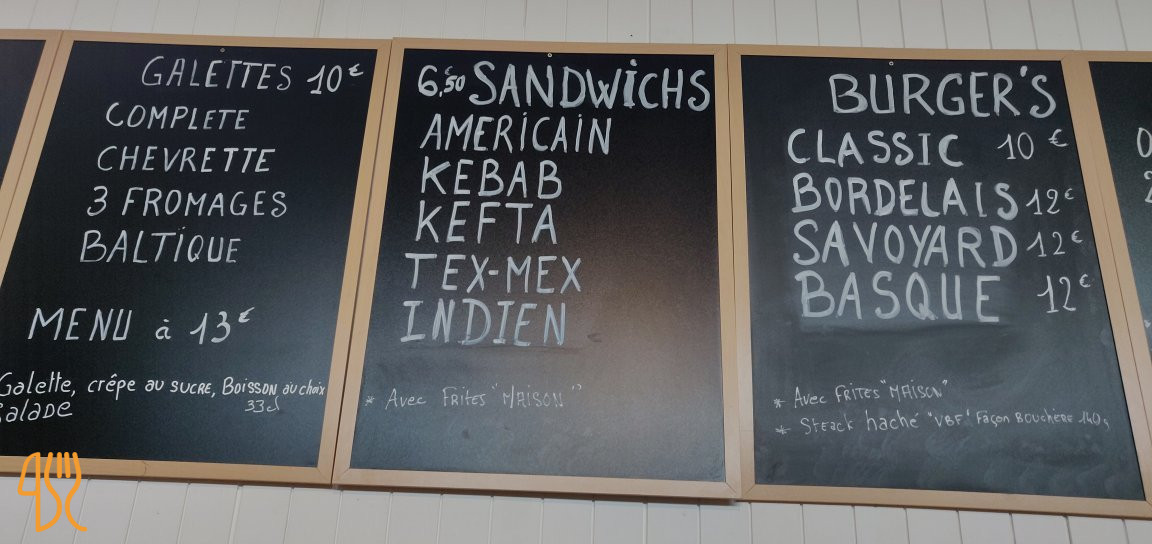 GALETTES 10€
COMPLETE
CHEVRETTE
3 FROMAGES
BALTIQUE
MENU à 13€
Galette, crêpe au sucre, Boisson au choix
33cl
Salade
6,50€ SANDWICHS
AMERICAIN
KEBAB
KEFTA
TEX-MEX
INDIEN
* Avec Frites "MAISON"
BURGER'S
CLASSIC 10€
BORDELAIS 12€
SAVOYARD 12€
BASQUE 12€
* Avec Frites "MAISON"
* Steack haché "VBF" Façon Bouchère 140g